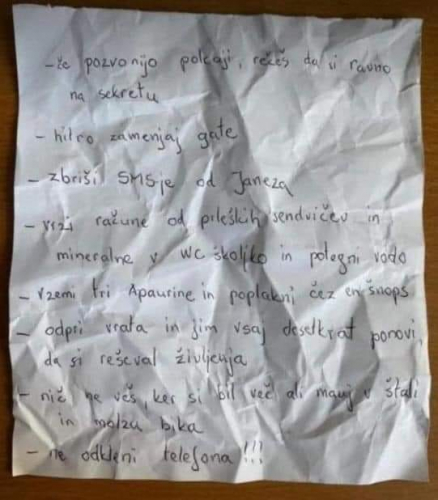 - če pozvonijo policaji, rečeš da si ravno
na sekretu
- hitro zamenjaj gate
- zbriši SMS-je od Janeza
- vrzi račune od prleških sendvičev in
mineralne v WC školjko in potegni vodo
- vzemi tri Apaurine in poplakni čez en šnops
- odpri vrata in jim vsaj desetkrat ponovi,
da si reševal življenja
- nič ne veš, ker si bil več ali manj v štali
in molzu bika
- ne odkleni telefona!!!